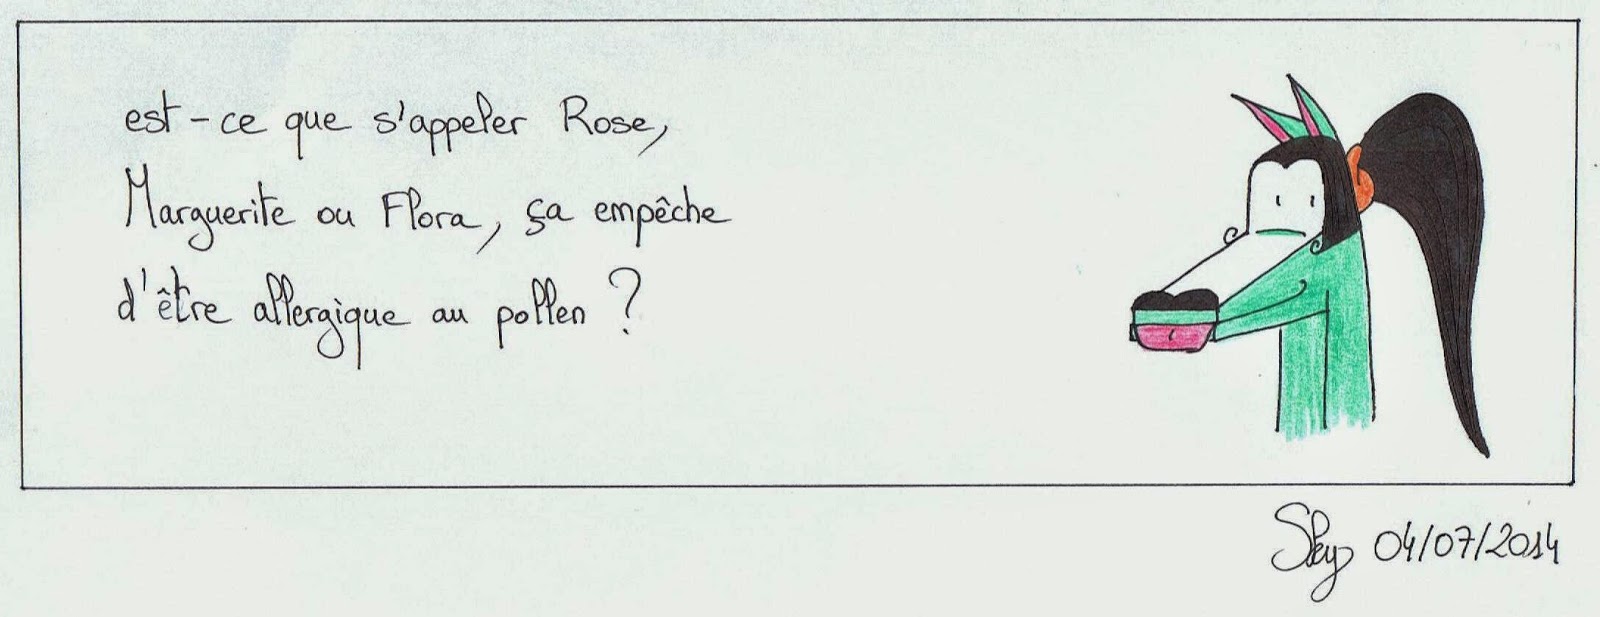 est-ce que s'appeler Rose,
Marguerite ou Flora, ça empêche
d'être allergique au pollen ?
04/07/2014